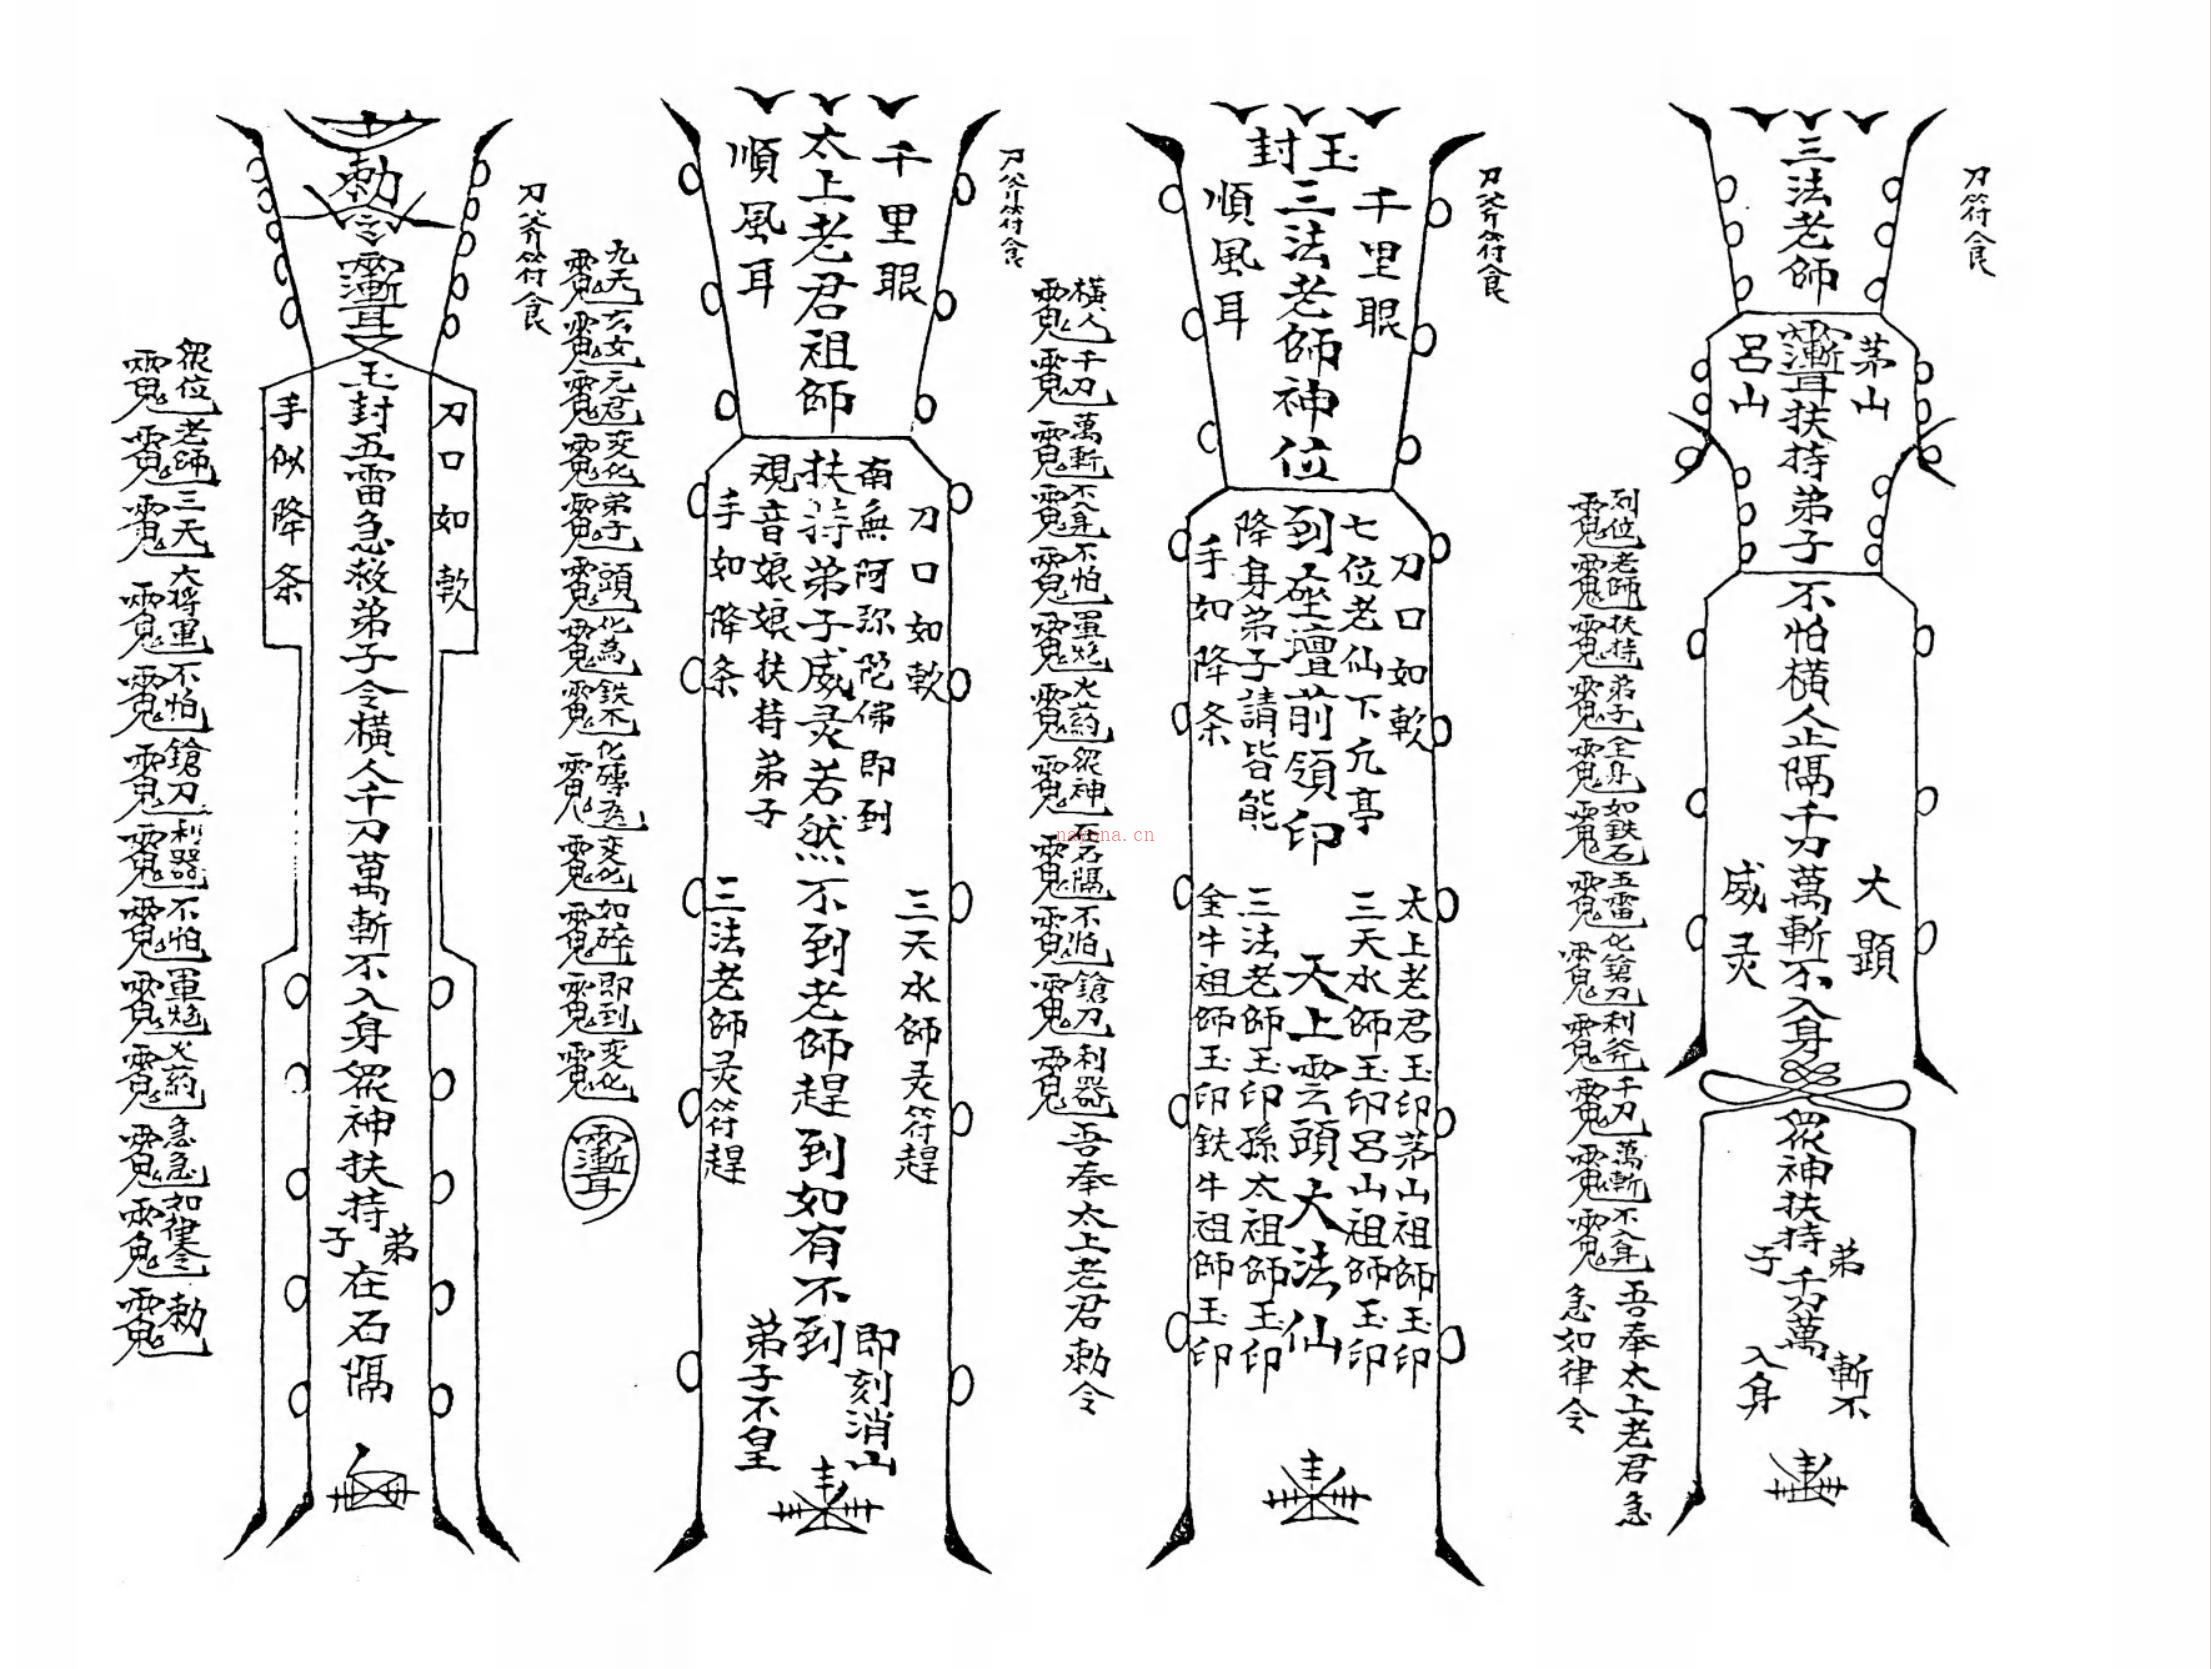 刀符食
三法老師
茅山
呂山
扶持弟子
不怕橫人止隔千刀萬斬不入身
大顕
威灵
眾神扶持
弟子
千刀萬
斬不
入身
列位老師扶持弟子全身如鉄石五雷化鎗刀利斧千刀萬斬不入身
吾奉太上老君急
急如律令
刀斧符食
玉封
三法老師神位
千里眼
順風耳
刀口如軟
七位老仙下亢亭
到座壇前領印
降身弟子請皆能
手如降条
太上老君玉印茅山祖師玉印
三天水師玉印呂山祖師玉印
天上雲頭大法仙
三法老師玉印孫太祖師玉印
金牛祖師玉印鉄牛祖師玉印
橫人千刀萬斬不入身不怕軍炮火药眾神石隔不怕鎗刀利器
吾奉太上老君勅令
刀斧符食
千里眼
太上老君祖師
順風耳
刀口如軟
南無阿弥陀佛即到
扶持弟子威灵若然不到老師趕到如有不到
观音娘娘扶持弟子
手如降条
三天水師灵符趕
三法老師灵符趕
即刻消山
弟子不皇
九天玄女元君变化弟子頭化為鉄不化磚瓦变化如碎即到变化
刀斧符食
勅令
玉封五雷急救弟子令橫人千刀萬斬不入身眾神扶持
弟子
在石隔
刀口如軟
手似降条
眾位老師三天大将軍不怕鎗刀利器不怕軍炮火药急急如律令勅
nayona.cn